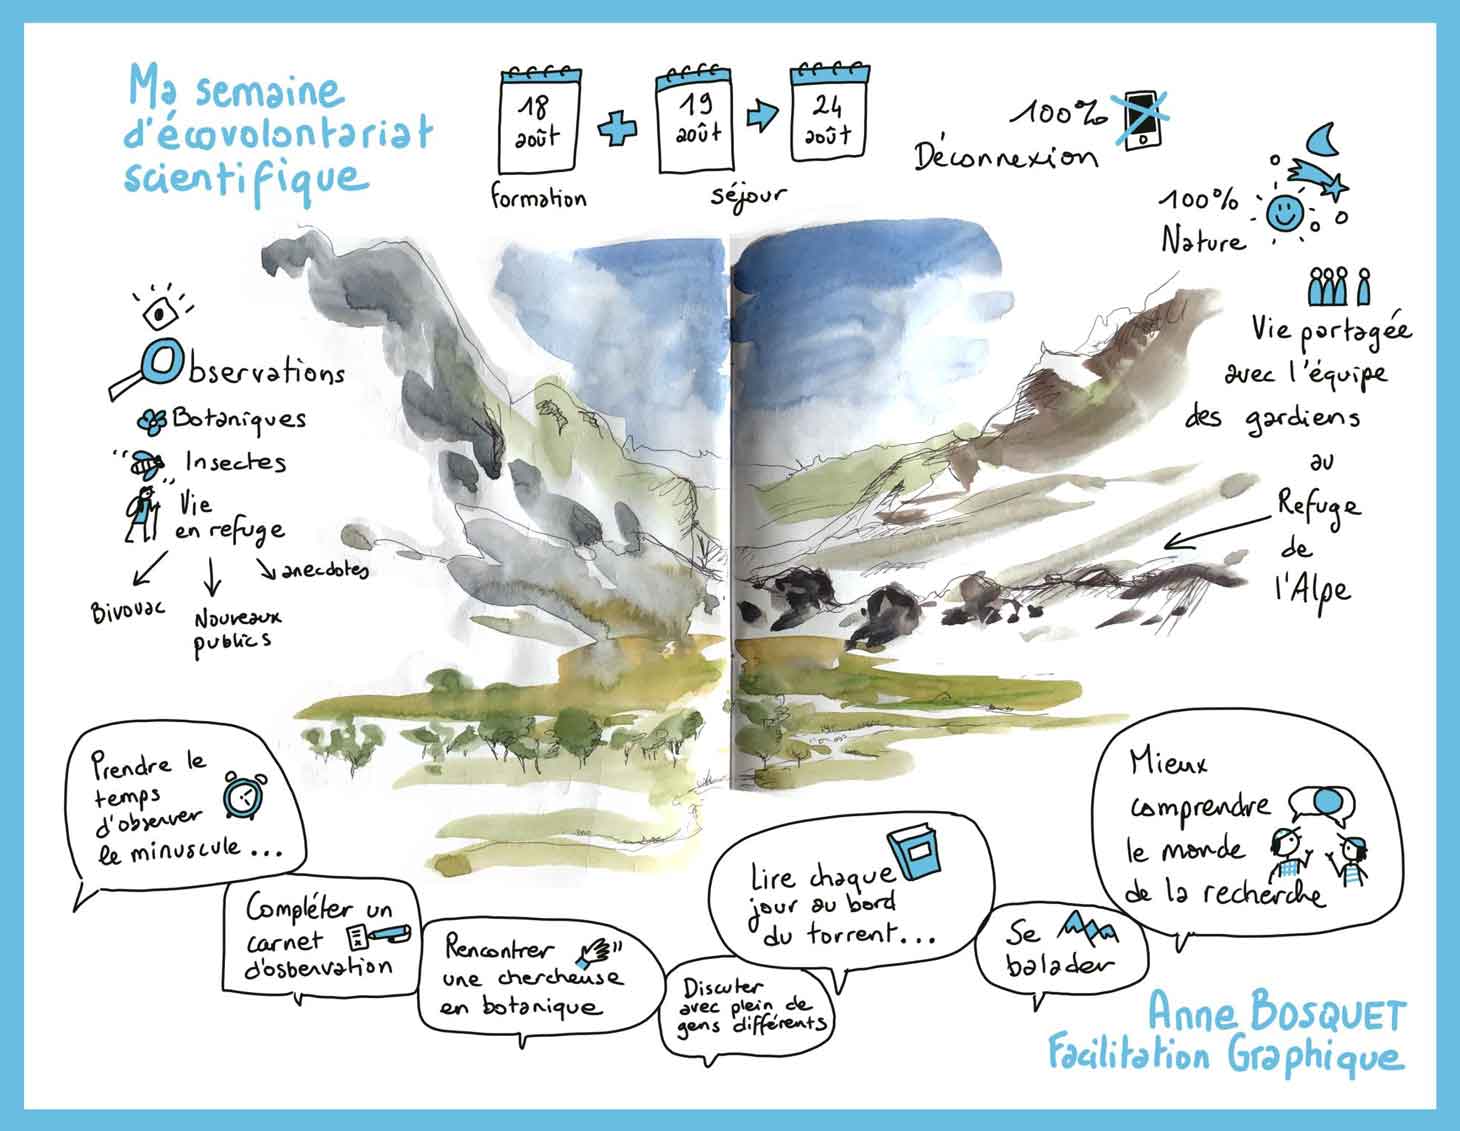 Ma semaine
d'écovolontariat
scientifique
18
août
19
août
24
août
formation
séjour
100%
Déconnexion
100%
Nature
Vie partagée
avec l'équipe
des gardiens
au
Refuge
de
l'Alpe
Observations
Botaniques
Insectes
Vie
en refuge
Bivouac
Nouveaux
publics
anecdotes
Prendre le
temps
d'observer
le minuscule ...
Compléter un
carnet
d'osbervation
Rencontrer
une chercheuse
en botanique
Discuter
avec plein de
gens différents
Lire chaque
jour au bord
du torrent...
Se
balader
Mieux
comprendre
le monde
de la recherche
Anne BOSQUET
Facilitation Graphique